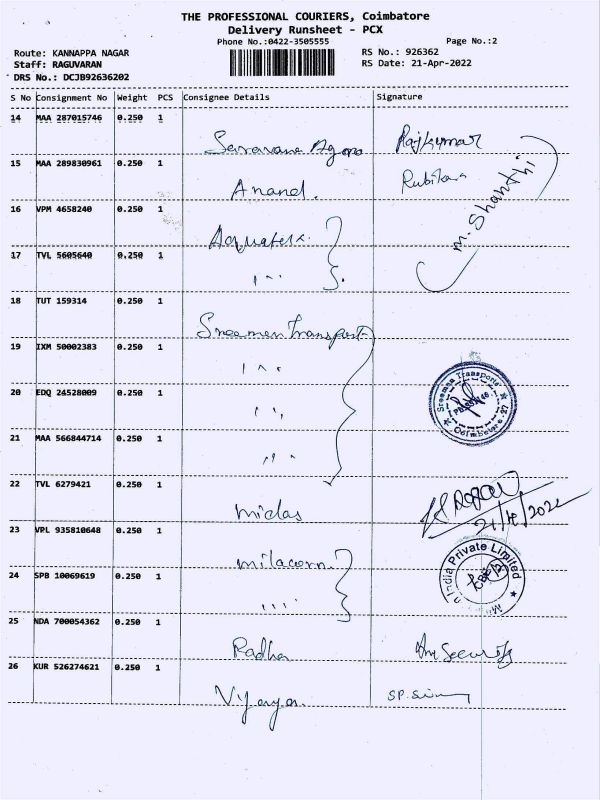 THE PROFESSIONAL COURIERS, Coimbatore
Delivery Runsheet - PCX
Phone No.:0422-3505555
Page No.:2
Route: KANNAPPA NAGAR
RS No.: 926362
Staff: RAGUVARAN
RS Date: 21-Apr-2022
DRS No.: DCJB92636202
S No Consignment No Weight PCS Consignee Details Signature
14 MAA 287015746 0.250 1
Saravana Agro Rajkumar
15 MAA 289830961 0.250 1
Anand.
M. Shanthi
16 VPM 4658240 0.250 1
17 TVL 5605640 0.250 1
18 TUT 159314 0.250 1
Sreeman Transport
19 IXM 50002383 0.250 1
20 EDQ 24528009 0.250 1
Sreeman Transports
Coimbatore
21 MAA 566844714 0.250 1
22 TVL 6279421 0.250 1
midas
21/4/2022
23 VPL 935810648 0.250 1
milacorn
India Private Limited
24 SPB 10069619 0.250 1
25 NDA 700054362 0.250 1
Radha
26 KUR 526274621 0.250 1
Vijaya.